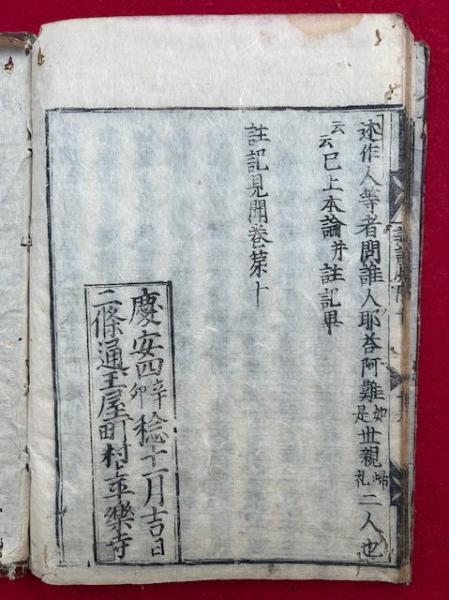 述作人等者問誰人耶答阿難如是世親歸礼二人也
云云已上本論并註記畢
註記見聞卷第十
慶安四辛卯稔十一月吉日
二條通玉屋町村上平樂寺